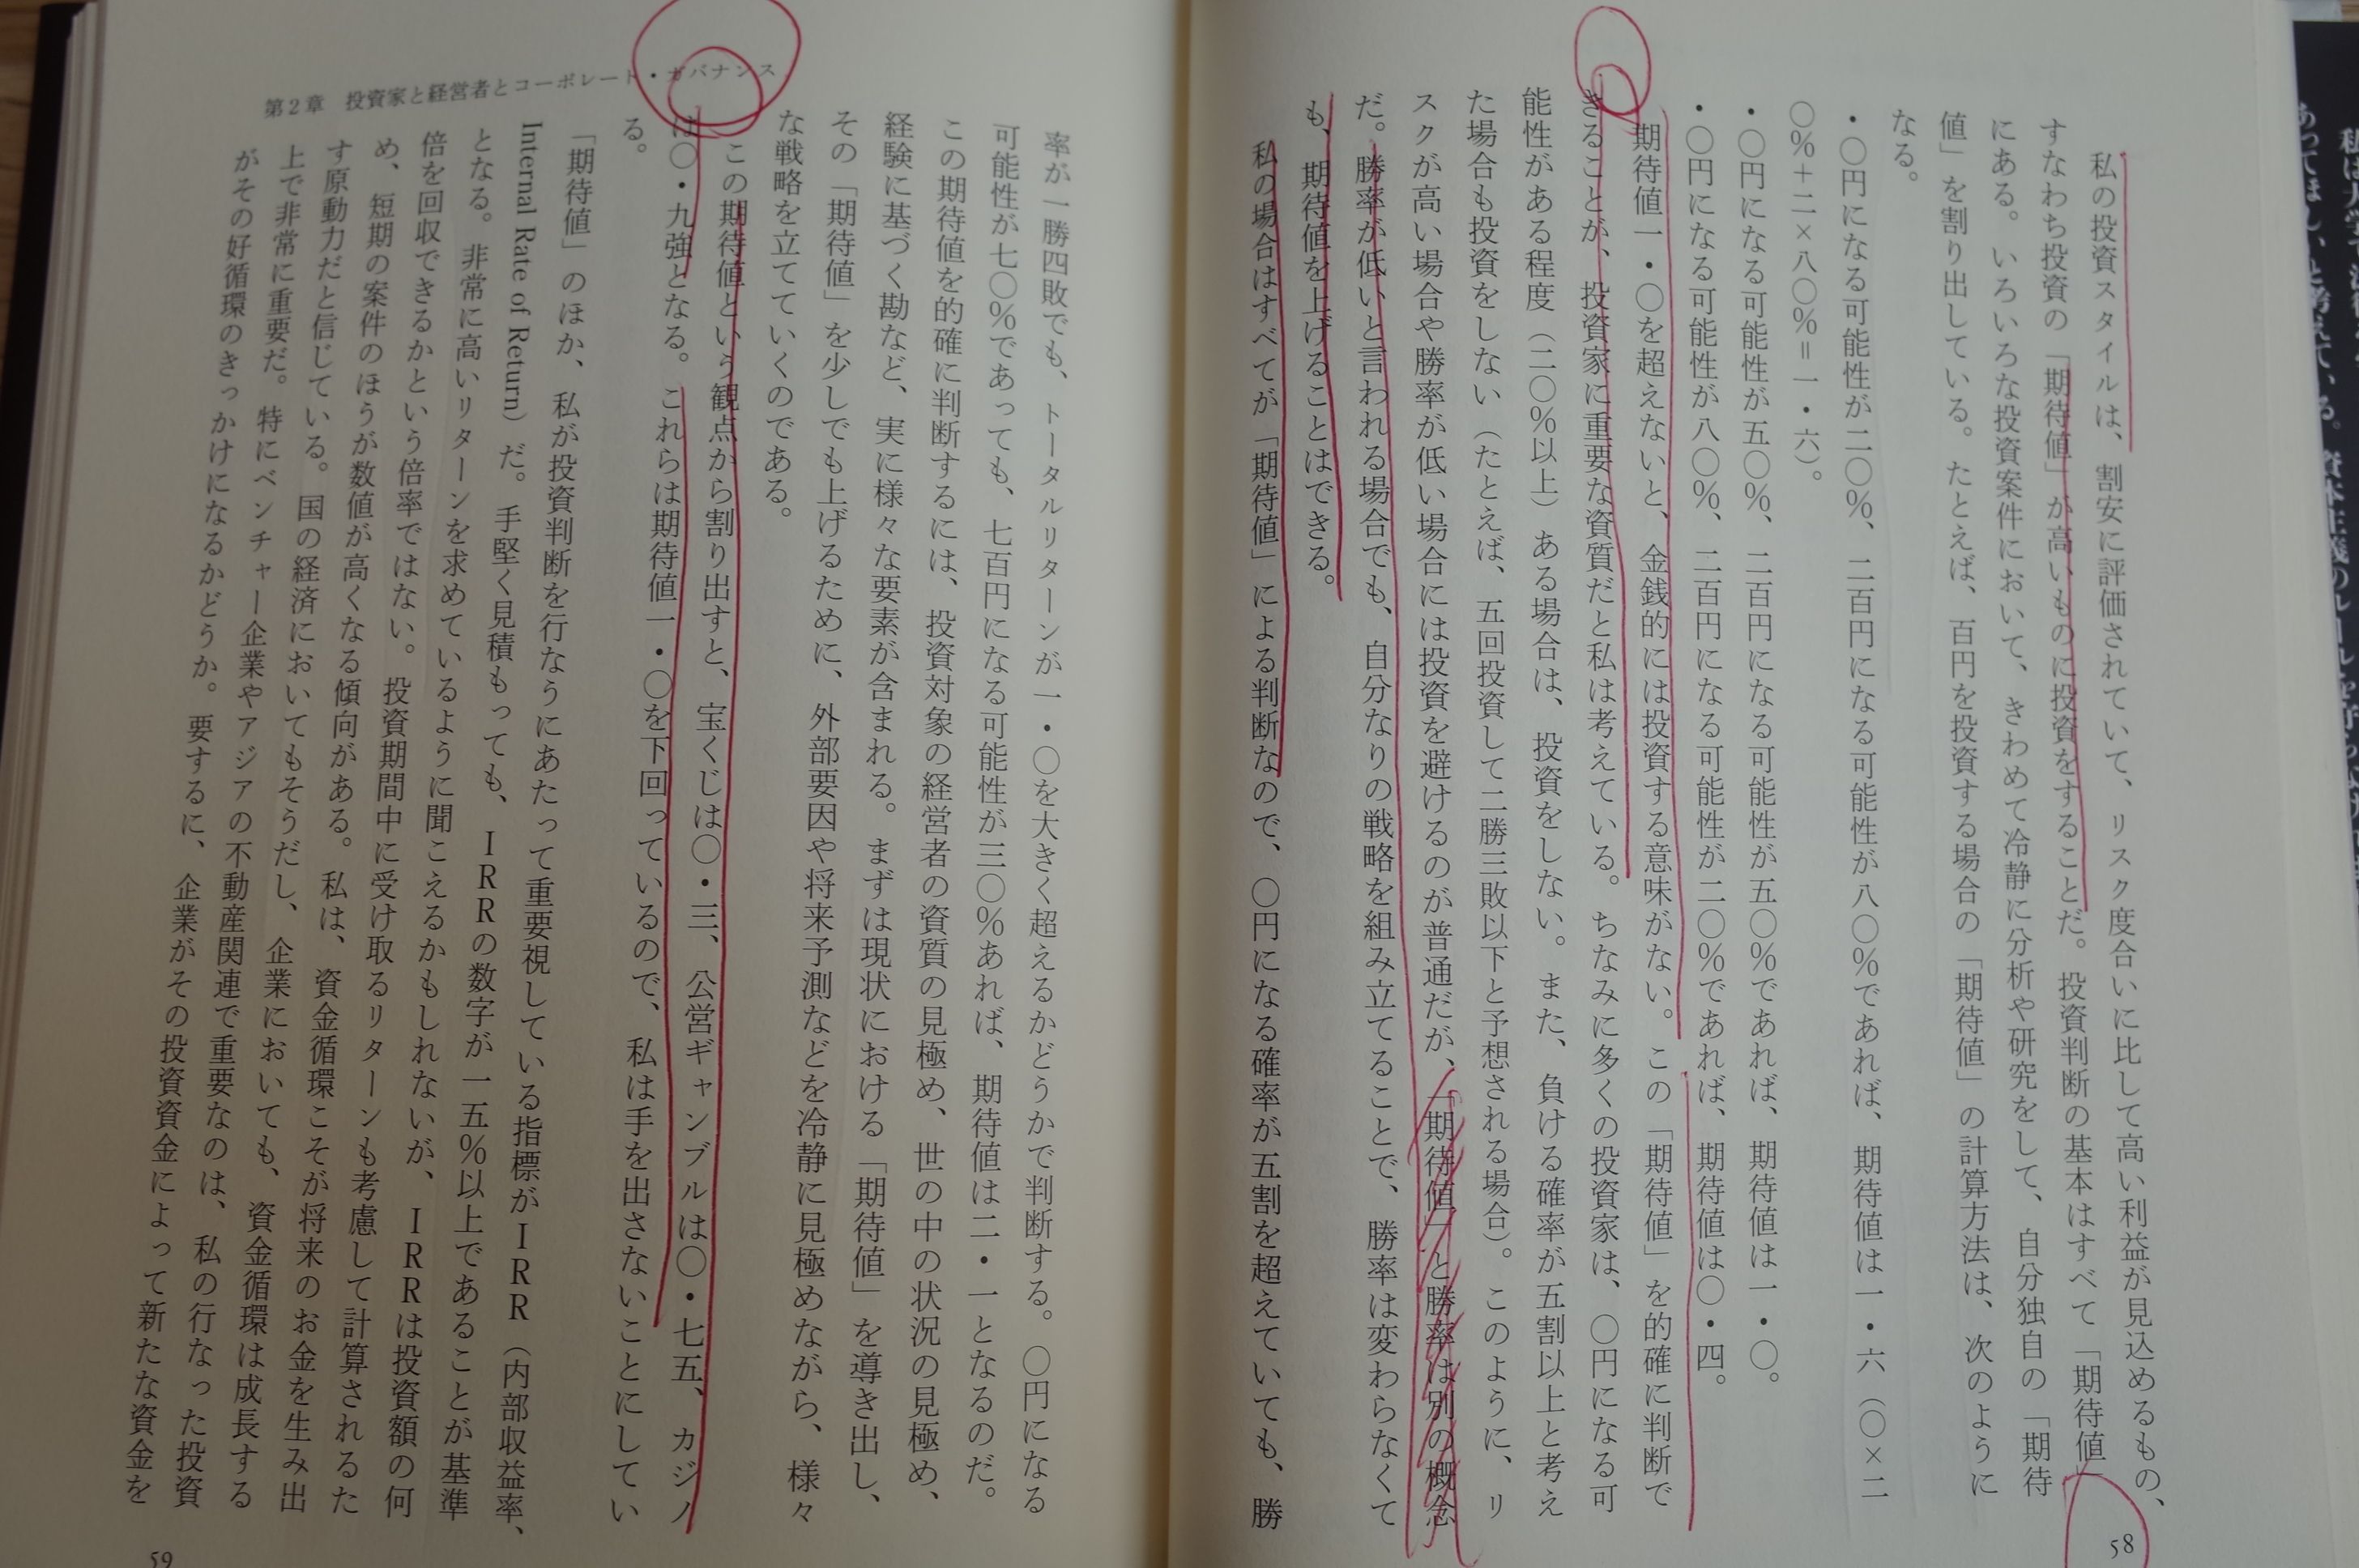 私の投資スタイルは、割安に評価されていて、リスク度合いに比して高い利益が見込めるもの、
すなわち投資の「期待値」が高いものに投資をすることだ。投資判断の基本はすべて「期待値」
にある。いろいろな投資案件において、きわめて冷静に分析や研究をして、自分独自の「期待
値」を割り出している。たとえば、百円を投資する場合の「期待値」の計算方法は、次のように
なる。
・〇円になる可能性が二〇％、二百円になる可能性が八〇％であれば、期待値は一・六（〇×二
〇％＋二×八〇％＝一・六）。
・〇円になる可能性が五〇％、二百円になる可能性が五〇％であれば、期待値は一・〇。
・〇円になる可能性が八〇％、二百円になる可能性が二〇％であれば、期待値は〇・四。
期待値一・〇を超えないと、金銭的には投資する意味がない。この「期待値」を的確に判断で
きることが、投資家に重要な資質だと私は考えている。ちなみに多くの投資家は、〇円になる可
能性がある程度（二〇％以上）ある場合は、投資をしない。また、負ける確率が五割以上と考え
た場合も投資をしない（たとえば、五回投資して二勝三敗以下と予想される場合）。このように、リ
スクが高い場合や勝率が低い場合には投資を避けるのが普通だが、「期待値」と勝率は別の概念
だ。勝率が低いと言われる場合でも、自分なりの戦略を組み立てることで、勝率は変わらなくて
も、期待値を上げることはできる。
私の場合はすべてが「期待値」による判断なので、〇円になる確率が五割を超えていても、勝
58
第2章　投資家と経営者とコーポレート・ガバナンス
率が一勝四敗でも、トータルリターンが一・〇を大きく超えるかどうかで判断する。〇円になる
可能性が七〇％であっても、七百円になる可能性が三〇％あれば、期待値は二・一となるのだ。
この期待値を的確に判断するには、投資対象の経営者の資質の見極め、世の中の状況の見極め、
経験に基づく勘など、実に様々な要素が含まれる。まずは現状における「期待値」を導き出し、
その「期待値」を少しでも上げるために、外部要因や将来予測などを冷静に見極めながら、様々
な戦略を立てていくのである。
この期待値という観点から割り出すと、宝くじは〇・三、公営ギャンブルは〇・七五、カジノ
は〇・九強となる。これらは期待値一・〇を下回っているので、私は手を出さないことにしてい
る。
「期待値」のほか、私が投資判断を行なうにあたって重要視している指標がIRR（内部収益率、
Internal Rate of Return）だ。手堅く見積もっても、IRRの数字が一五％以上であることが基準
となる。非常に高いリターンを求めているように聞こえるかもしれないが、IRRは投資額の何
倍を回収できるかという倍率ではない。投資期間中に受け取るリターンも考慮して計算されるた
め、短期の案件のほうが数値が高くなる傾向がある。私は、資金循環こそが将来のお金を生み出
す原動力だと信じている。国の経済においてもそうだし、企業においても、資金循環は成長する
上で非常に重要だ。特にベンチャー企業やアジアの不動産関連で重要なのは、私の行なった投資
がその好循環のきっかけになるかどうか。要するに、企業がその投資資金によって新たな資金を
59